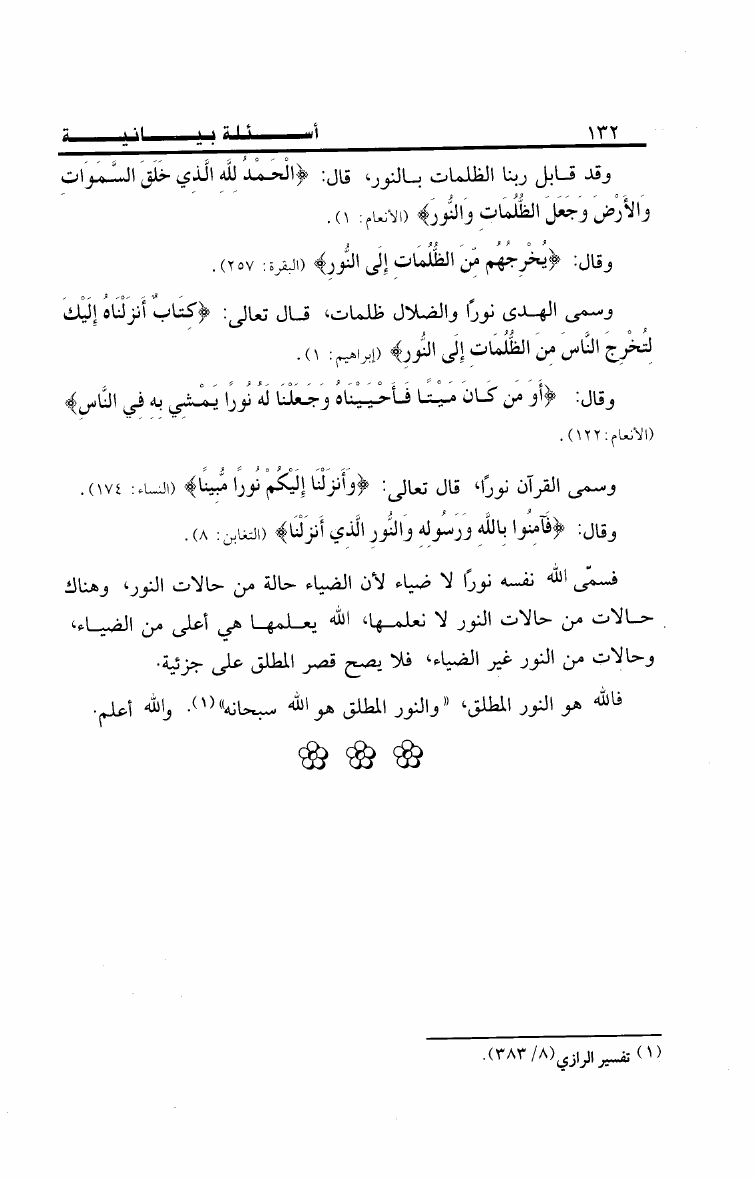 ١٣٢ أســـئلة بيـــانيـــة
وقد قـابل ربنا الظلمات بـالنور، قال: ﴿الْحَمْدُ لِلَّهِ الَّذِي خَلَقَ السَّمَوَاتِ
وَالأَرْضَ وَجَعَلَ الظُّلُمَاتِ وَالنُّورَ﴾ (الأنعام: ١).
وقال: ﴿يُخْرِجُهُم مِّنَ الظُّلُمَاتِ إِلَى النُّورِ﴾ (البقرة: ٢٥٧).
وسمى الهـدى نورًا والضلال ظلمات، قـال تعالى: ﴿كِتَابٌ أَنزَلْنَاهُ إِلَيْكَ
لِتُخْرِجَ النَّاسَ مِنَ الظُّلُمَاتِ إِلَى النُّورِ﴾ (إبراهيم: ١).
وقال: ﴿أَوَ مَن كَـانَ مَيْتًـا فَـأَحْيَـيْنَاهُ وَجَـعَلْنَا لَهُ نُورًا يَمْـشِي بِهِ فِي النَّاسِ﴾
(الأنعام:١٢٢).
وسمى القرآن نورًا، قال تعالى: ﴿وَأَنزَلْنَا إِلَيْكُمْ نُورًا مُّبِينًا﴾ (النساء: ١٧٤).
وقال: ﴿فَآمِنُوا بِاللَّهِ وَرَسُولِهِ وَالنُّورِ الَّذِي أَنزَلْنَا﴾ (التغابن: ٨).
فسمّى الله نفسه نورًا لا ضياء لأن الضياء حالة من حالات النور، وهناك
حـالات من حالات النور لا نعلمـها، الله يعـلمهـا هي أعلى من الضيـاء،
وحالات من النور غير الضياء، فلا يصح قصر المطلق على جزئية.
فالله هو النور المطلق، «والنور المطلق هو الله سبحانه»(١). والله أعلم.
(١) تفسير الرازي(٨/ ٣٨٣).